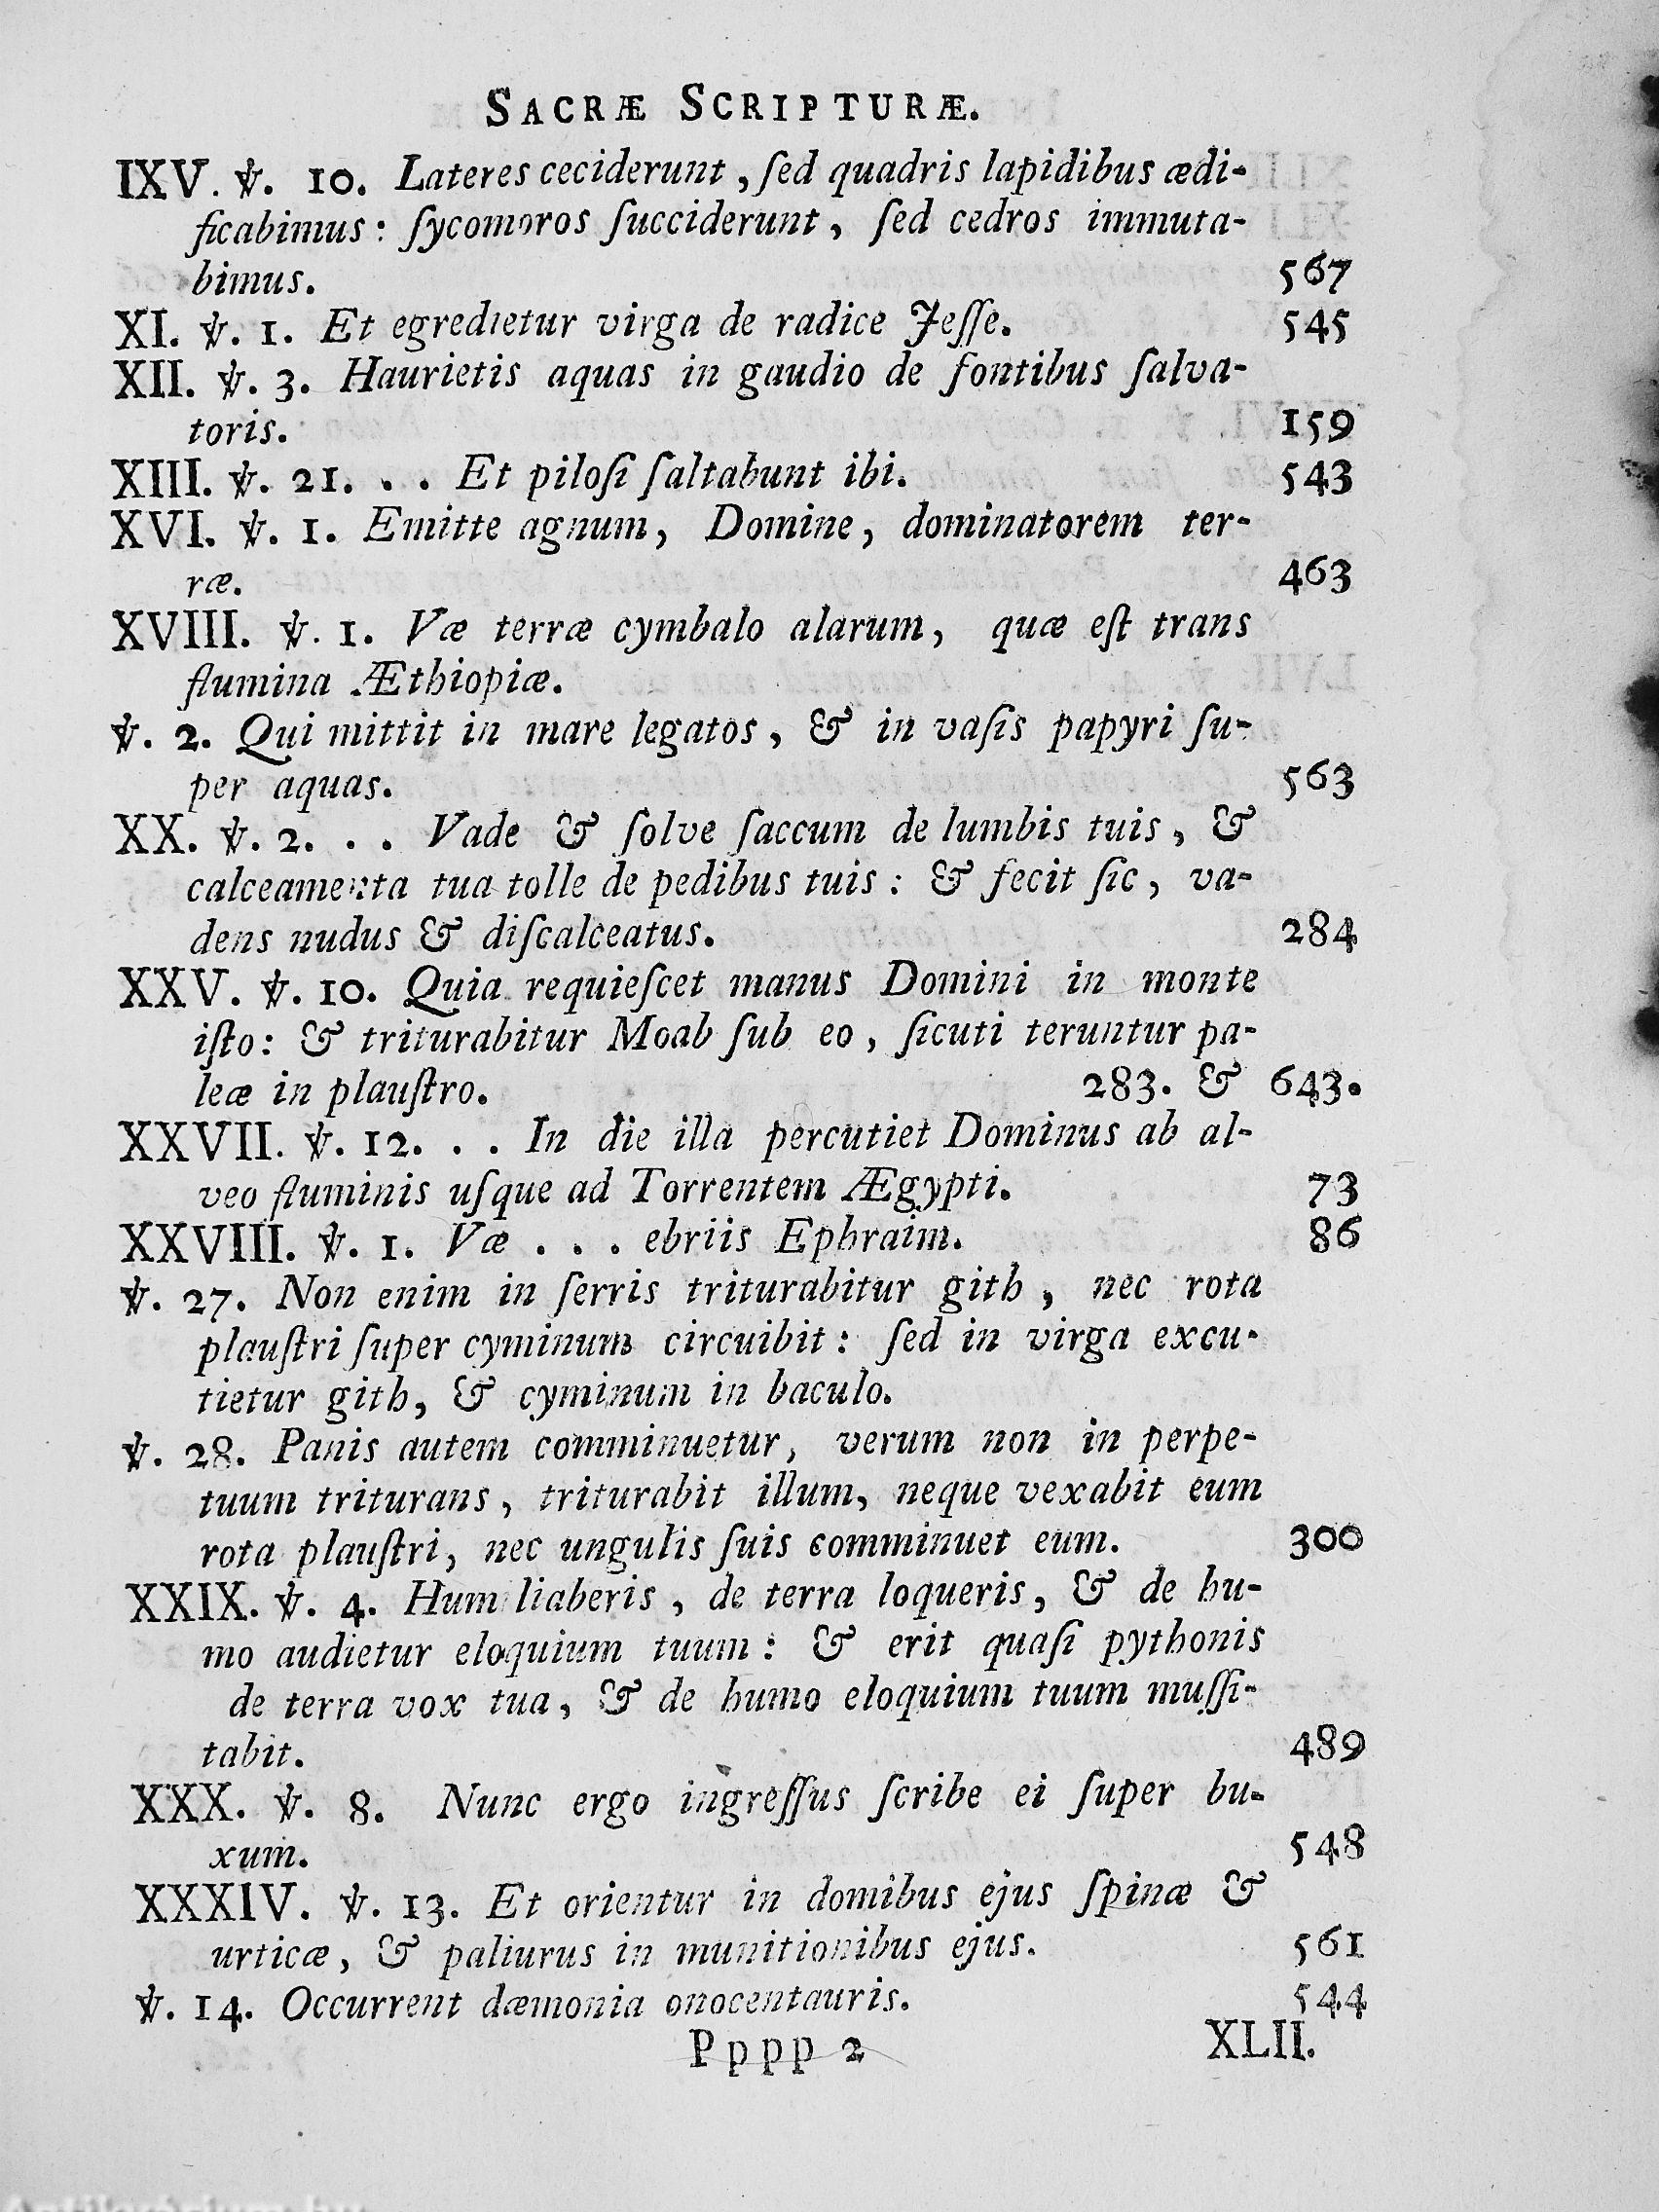 SACRÆ SCRIPTURÆ.
IXV. ℣. 10. Lateres ceciderunt, ſed quadris lapidibus ædi-
ficabimus: ſycomoros ſucciderunt, ſed cedros immuta-
bimus. 567
XI. ℣. 1. Et egredietur virga de radice Jeſſe. 545
XII. ℣. 3. Haurietis aquas in gaudio de fontibus ſalva-
toris. 159
XIII. ℣. 21. . . Et piloſi ſaltabunt ibi. 543
XVI. ℣. 1. Emitte agnum, Domine, dominatorem ter-
ræ. 463
XVIII. ℣. 1. Væ terræ cymbalo alarum, quæ eſt trans
flumina Æthiopiæ.
℣. 2. Qui mittit in mare legatos, & in vaſis papyri ſu-
per aquas. 563
XX. ℣. 2. . . Vade & ſolve ſaccum de lumbis tuis, &
calceamenta tua tolle de pedibus tuis: & fecit ſic, va-
dens nudus & diſcalceatus. 284
XXV. ℣. 10. Quia requieſcet manus Domini in monte
iſto: & triturabitur Moab ſub eo, ſicuti teruntur pa-
leæ in plauſtro. 283. & 643.
XXVII. ℣. 12. . . In die illa percutiet Dominus ab al-
veo fluminis uſque ad Torrentem Ægypti. 73
XXVIII. ℣. 1. Væ . . . ebriis Ephraim. 86
℣. 27. Non enim in ſerris triturabitur gith, nec rota
plauſtri ſuper cyminum circuibit: ſed in virga excu-
tietur gith, & cyminum in baculo.
℣. 28. Panis autem comminuetur, verum non in perpe-
tuum triturans, triturabit illum, neque vexabit eum
rota plauſtri, nec ungulis ſuis comminuet eum. 300
XXIX. ℣. 4. Hum liaberis, de terra loqueris, & de hu-
mo audietur eloquium tuum: & erit quaſi pythonis
de terra vox tua, & de humo eloquium tuum muſſi-
tabit. 489
XXX. ℣. 8. Nunc ergo ingreſſus ſcribe ei ſuper bu-
xum. 548
XXXIV. ℣. 13. Et orientur in domibus ejus ſpinæ &
urticæ, & paliurus in munitionibus ejus. 561
℣. 14. Occurrent dæmonia onocentauris. 544
Pppp 2 XLII.